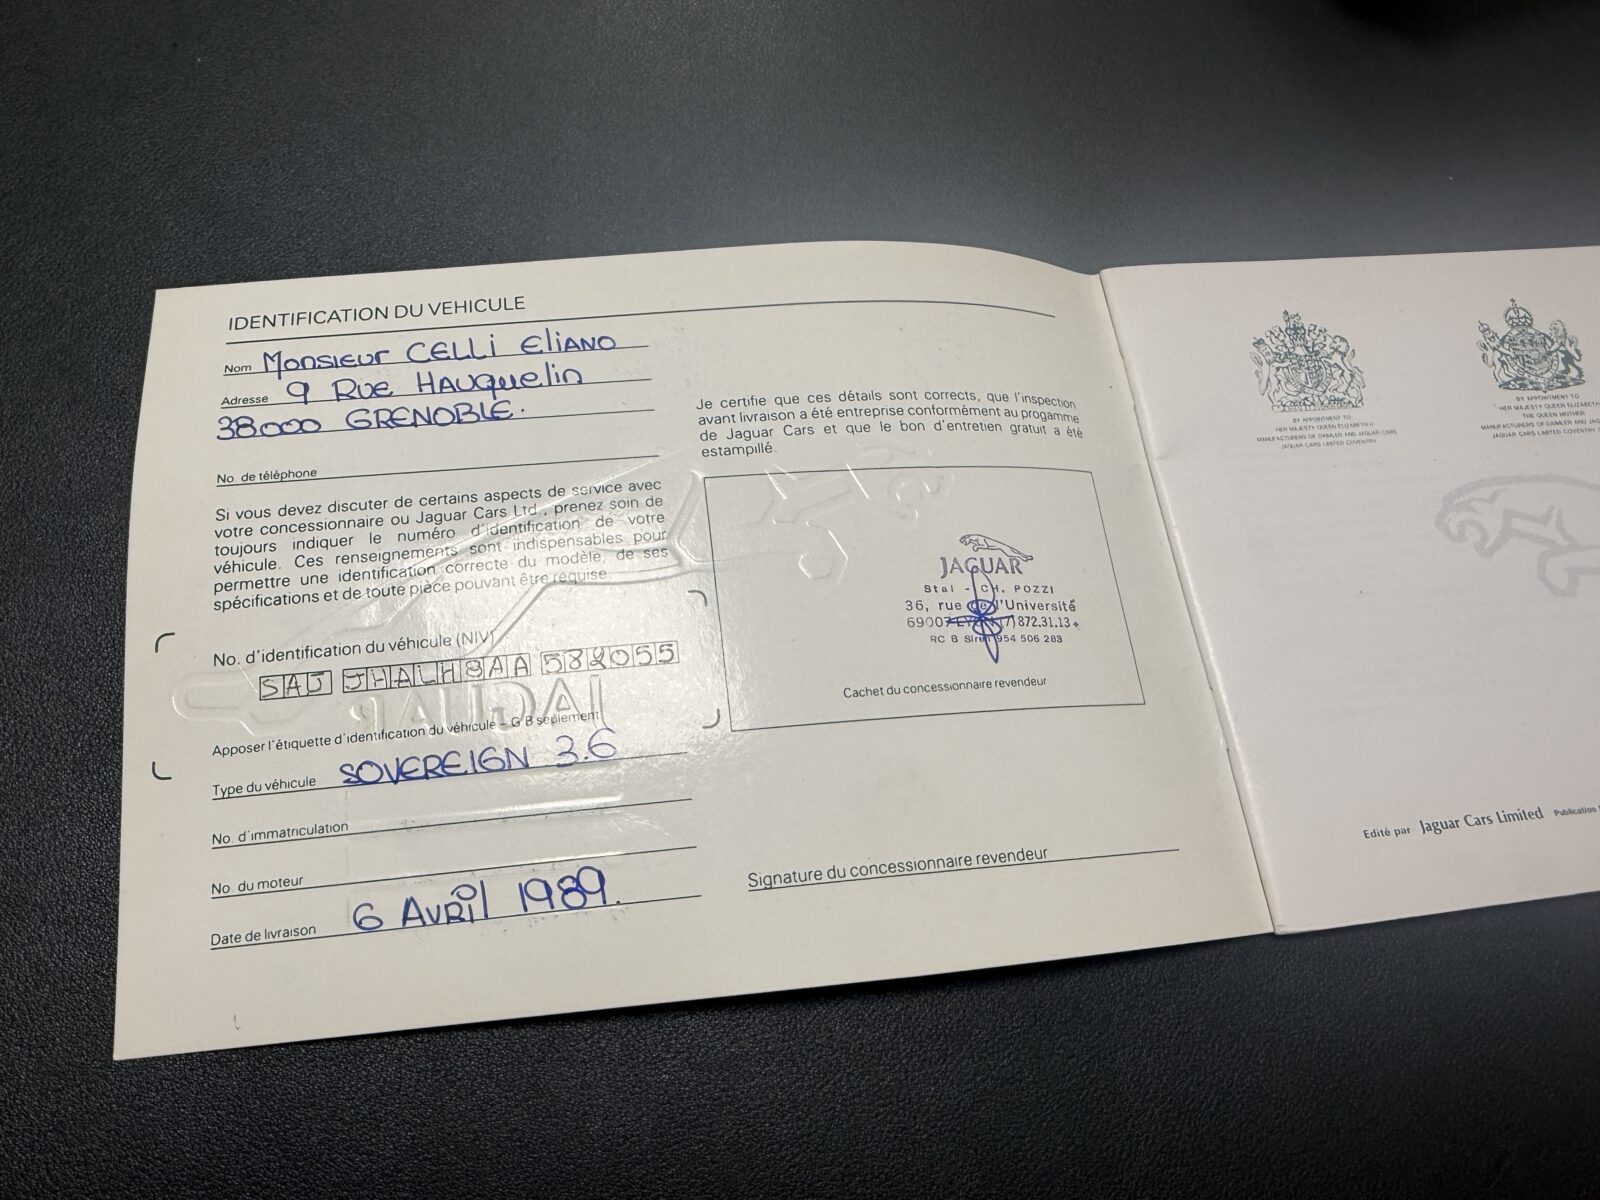 IDENTIFICATION DU VEHICULE
Nom Monsieur CELLI Eliano
Adresse 9 Rue Hauquelin
38000 GRENOBLE.
No. de téléphone
Si vous devez discuter de certains aspects de service avec
votre concessionnaire ou Jaguar Cars Ltd., prenez soin de
toujours indiquer le numéro d'identification de votre
véhicule. Ces renseignements sont indispensables pour
permettre une identification correcte du modèle, de ses
spécifications et de toute pièce pouvant être requise
No. d'identification du véhicule (NIV)
SAJ JHALH3AA 582055
Apposer l'étiquette d'identification du véhicule – G B seulement
Type du véhicule SOVEREIGN 3.6
No. d'immatriculation
No. du moteur
Date de livraison 6 Avril 1989.
Je certifie que ces détails sont corrects, que l'inspection
avant livraison a été entreprise conformément au progamme
de Jaguar Cars et que le bon d'entretien gratuit a été
estampillé.
JAGUAR
Stal - CH. POZZI
36, rue de l'Université
69007 872.31.13+
RC B Siren 954 506 283
Cachet du concessionnaire revendeur
Signature du concessionnaire revendeur
BY APPOINTMENT TO
HER MAJESTY QUEEN ELIZABETH II
MANUFACTURERS OF DAIMLER AND JAGUAR CARS
JAGUAR CARS LIMITED COVENTRY
BY APPOINTMENT TO
HER MAJESTY QUEEN ELIZABETH
THE QUEEN MOTHER
MANUFACTURERS OF DAIMLER AND JAG
JAGUAR CARS LIMITED COVENTRY
Edité par Jaguar Cars Limited Publication
JAGUAR